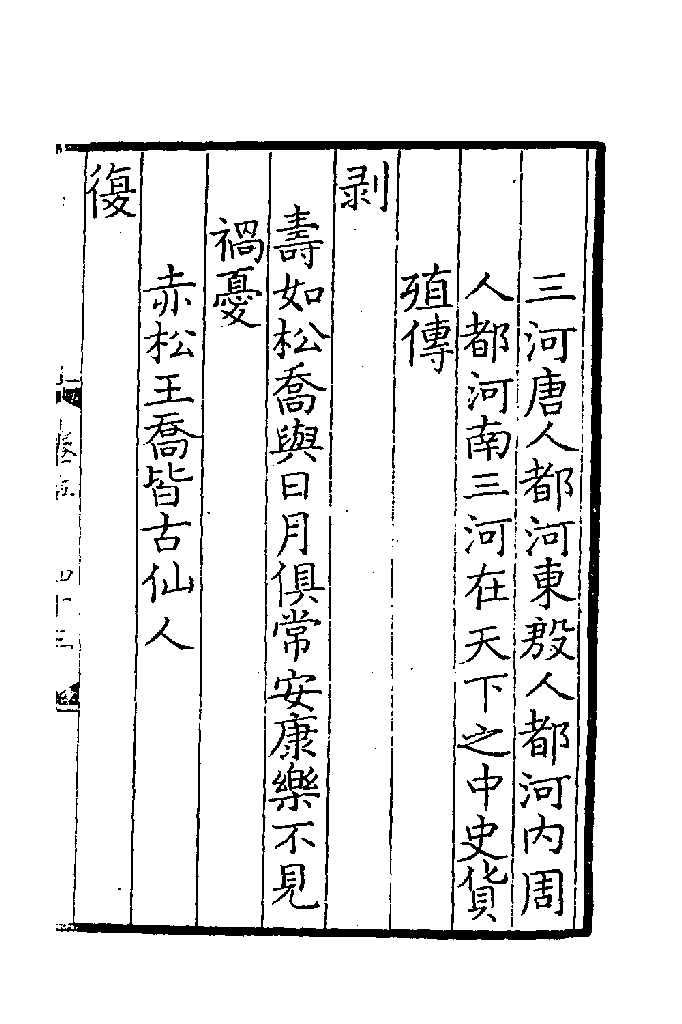 三河唐人都河東殷人都河内周
人都河南三河在天下之中史貨
殖傳
剥
壽如松喬與日月俱常安康樂不見
禍憂
赤松王喬皆古仙人
復
卷五
四十三